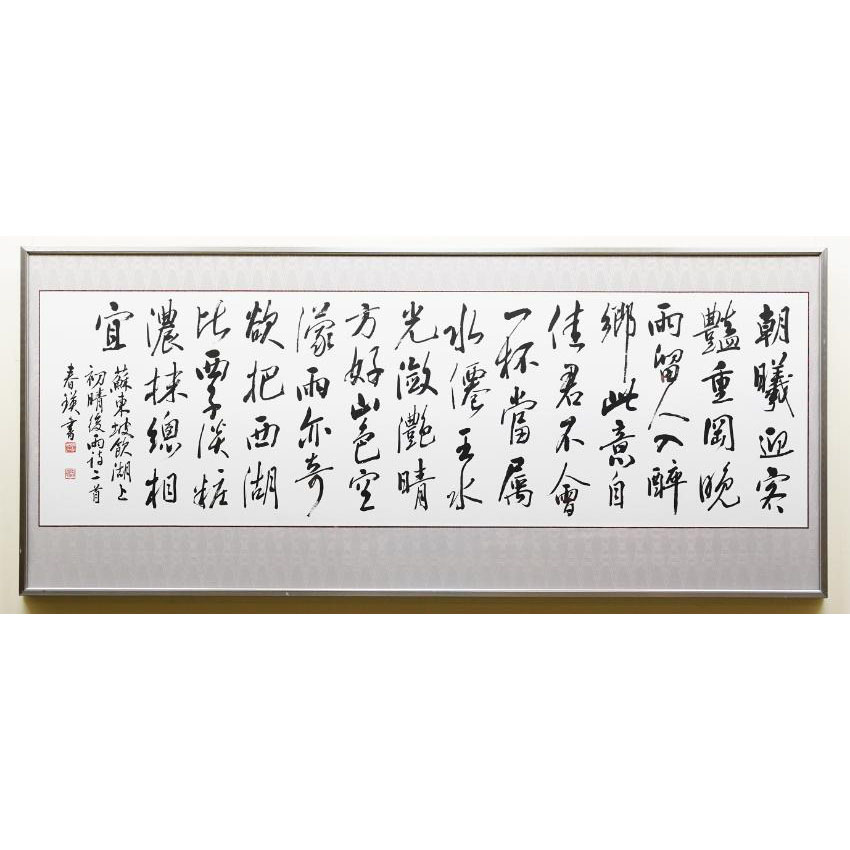 朝曦迎客
豔重岡晚
雨留人入醉
鄉此意自
佳君不會
一杯當屬
水僊王水
光瀲灩晴
方好山色空
濛雨亦奇
欲把西湖
比西子淡粧
濃抹總相
宜
蘇東坡飲湖上
初晴後雨詩二首
春瑛書